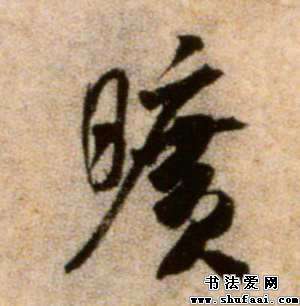 曠
书法爱网
www.shufaai.com